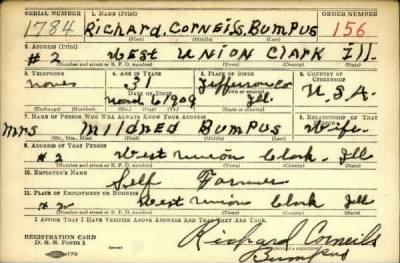 SERIAL NUMBER 1. NAME (Print) ORDER NUMBER
1784 Richard. Corneils. Bumpus 156
(First) (Middle) (Last)
2. ADDRESS (Print)
# 2 West Union Clark Ill.
(Number and street or R. F. D. number) (Town) (County) (State)
3. TELEPHONE 4. AGE IN YEARS 5. PLACE OF BIRTH 6. COUNTRY OF CITIZENSHIP
31 Jefferson Co
DATE OF BIRTH
6 1909 Ill. U.S.A.
(Exchange) (Number) (Mo.) (Day) (Yr.) (State or country)
7. NAME OF PERSON WHO WILL ALWAYS KNOW YOUR ADDRESS 8. RELATIONSHIP OF THAT PERSON
Mrs Mildred Bumpus Wife.
(Mr., Mrs., Miss) (First) (Middle) (Last)
9. ADDRESS OF THAT PERSON
# 2 West Union Clark. Ill
(Number and street or R. F. D. number) (Town) (County) (State)
10. EMPLOYER'S NAME
Self Farmer
11. PLACE OF EMPLOYMENT OR BUSINESS
# 2 West Union Clark Ill
(Number and street or R. F. D. number) (Town) (County) (State)
I AFFIRM THAT I HAVE VERIFIED ABOVE ANSWERS AND THAT THEY ARE TRUE.
REGISTRATION CARD
D. S. S. Form 1 Richard Corneils
Bumpus